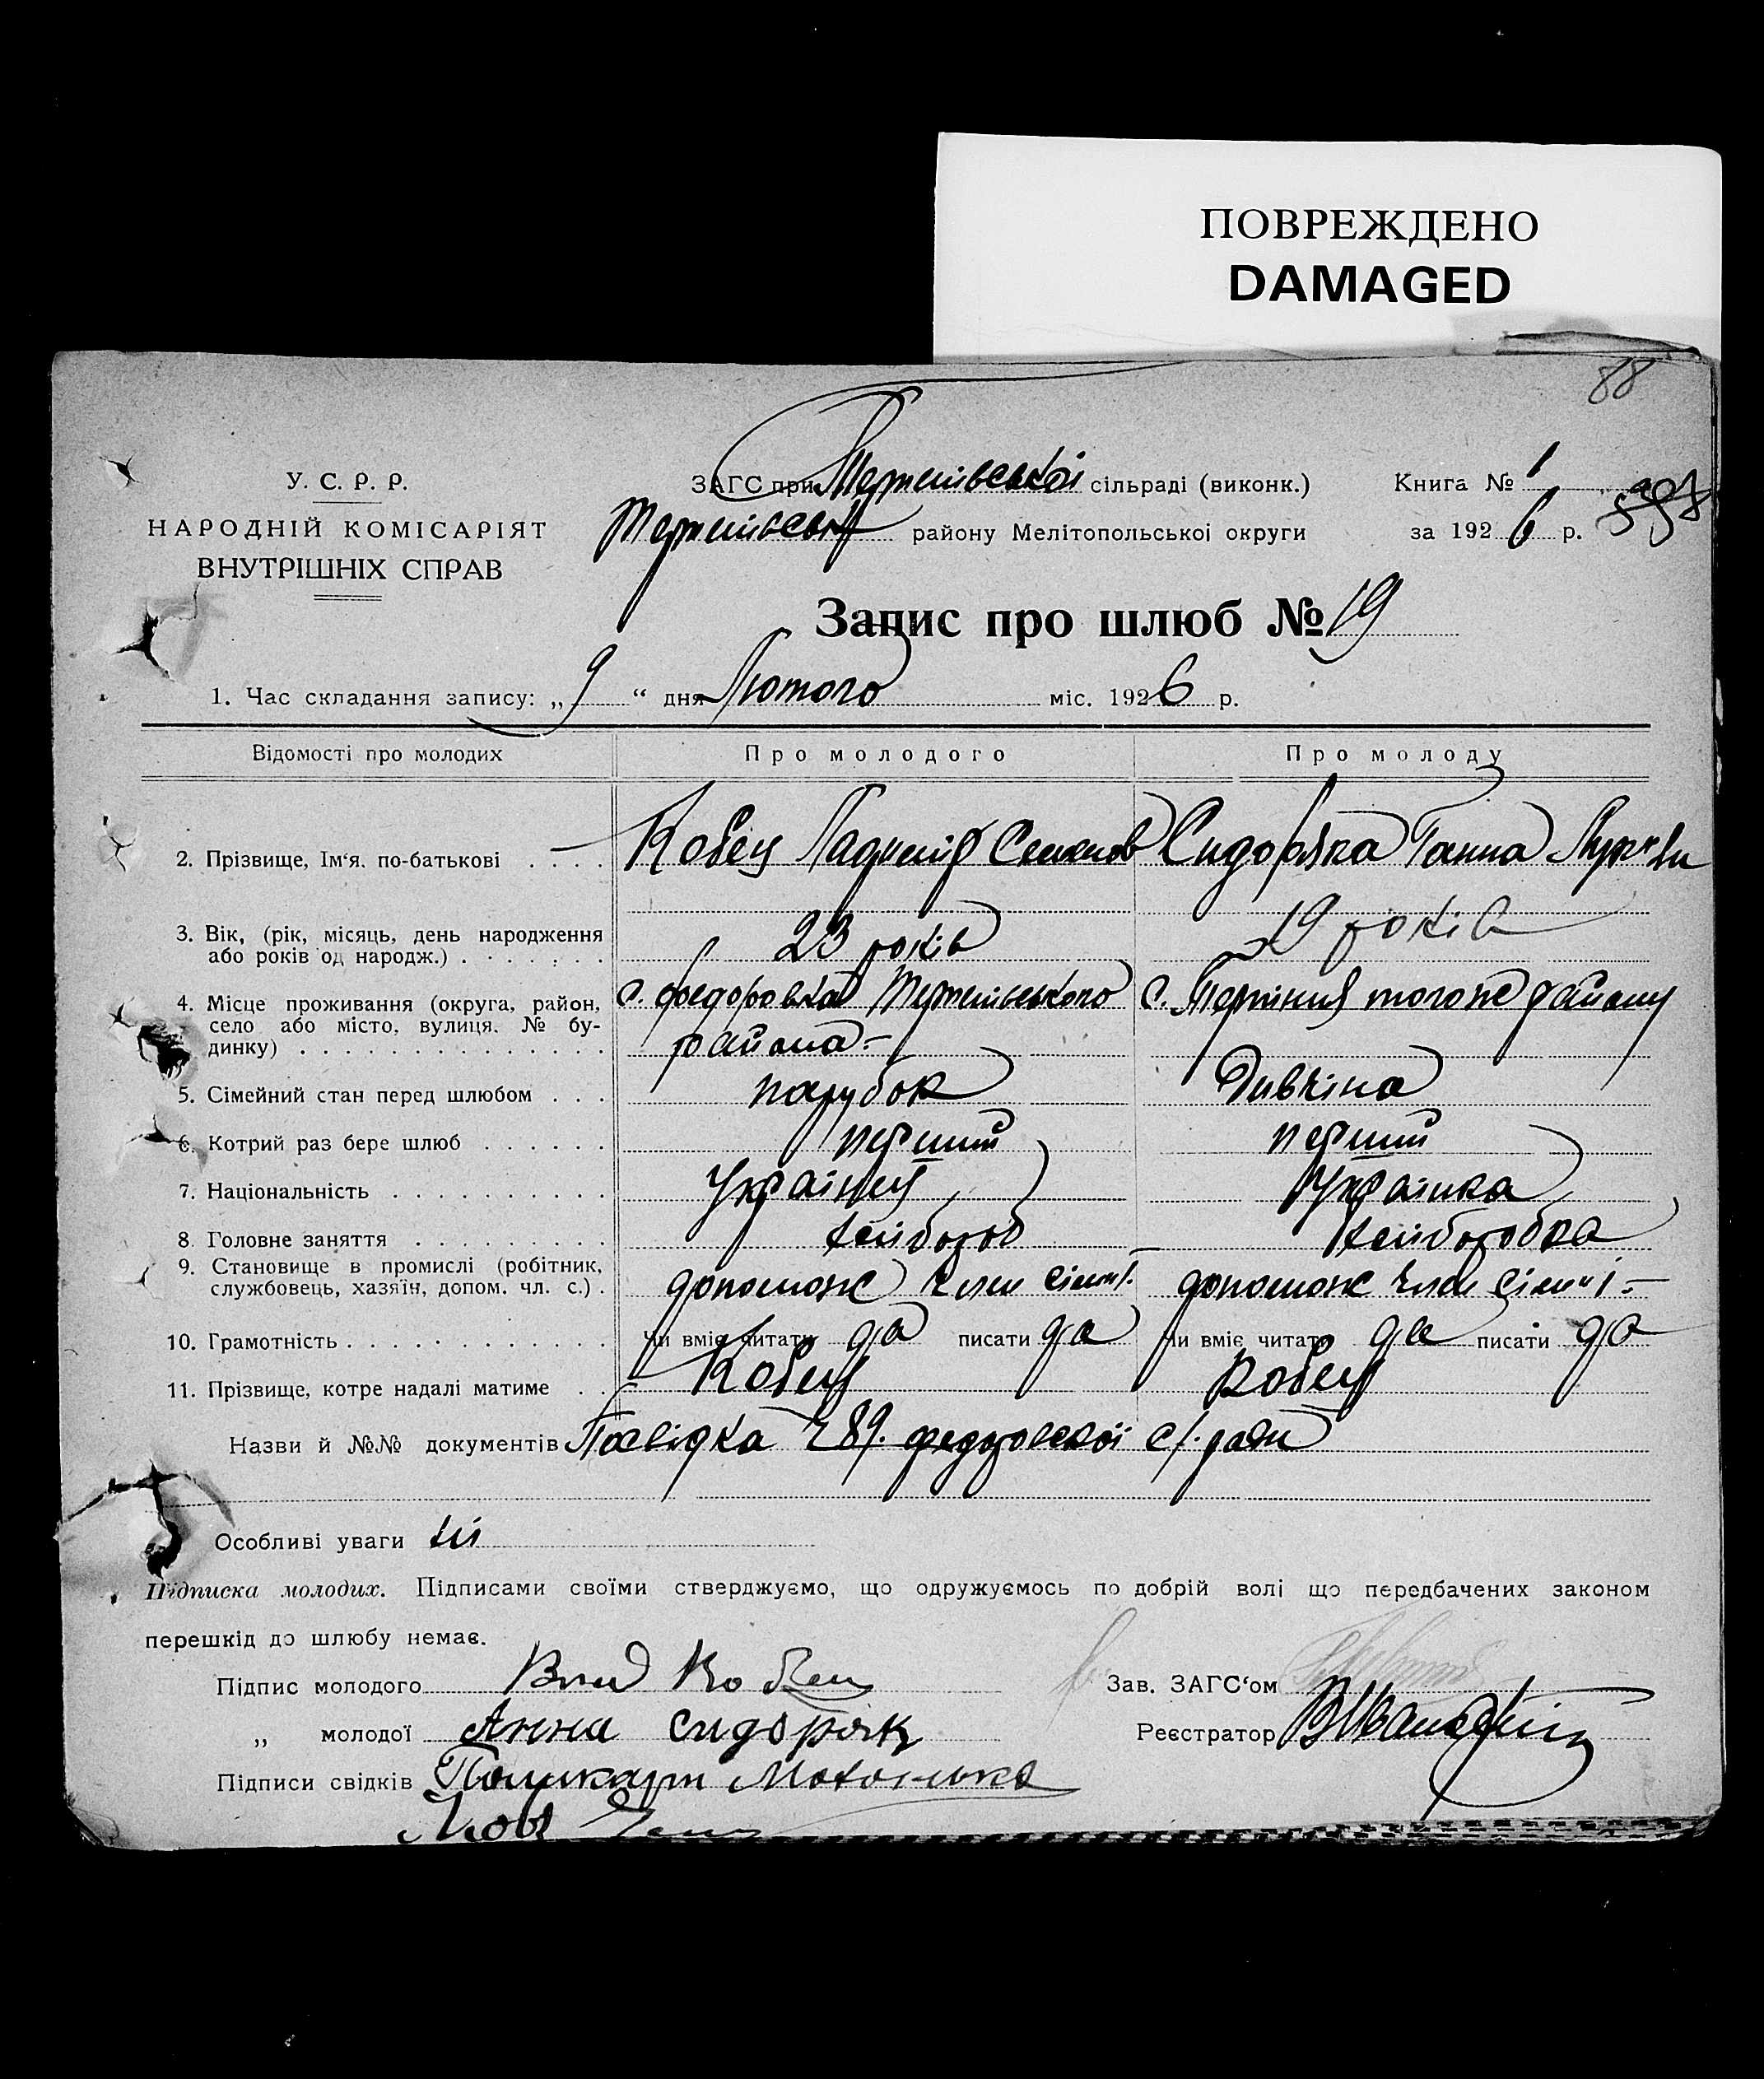 ПОВРЕЖДЕНО
DAMAGED
88
У. С. Р. Р.
НАРОДНІЙ КОМІСАРІЯТ
ВНУТРІШНІХ СПРАВ
ЗАГС при Терпеніівської сільраді (виконк.)
району Мелітопольської округи
Книга № 1
за 1926 р.
Запис про шлюб № 19
1. Час складання запису: „9“ дня Лютого міс. 1926 р.
Відомості про молодих Про молодого Про молоду
2. Прізвище, Ім'я, по-батькові . . . . Кобец Сидоряка Ганна
3. Вік, (рік, місяць, день народження
або років од народж.) . . . . . . 23 років 19 років
4. Місце проживання (округа, район,
село або місто, вулиця, № бу-
динку) . . . . . . . . . . . . . .
с. Федоровка
района - с. того же району
5. Сімейний стан перед шлюбом . . . парубок Дивчіна
6. Котрий раз бере шлюб . . . . . . перший перший
7. Національність . . . . . . . . . . Українец Українка
8. Головне заняття . . . . . . . . . хлібороб хліборобка
9. Становище в промислі (робітник,
службовець, хазяїн, допом. чл. с.) . допомож член сімї. допомож член сімї -
10. Грамотність . . . . . . . . . . . . Чи вміє читати да писати да Чи вміє читати да писати да
11. Прізвище, котре надалі матиме . . Кобец Кобец
Назви й №№ документів Посвідка Ч 89. федоровскої с/.ради
Особливі уваги ні
Підписка молодих. Підписами своїми стверджуємо, що одружуємось по добрій волі що передбачених законом
перешкід до шлюбу немає.
Підпис молодого Влад Кобец
„ молодої Анна Сидоряк
Підписи свідків
Зав. ЗАГС'ом
Реєстратор